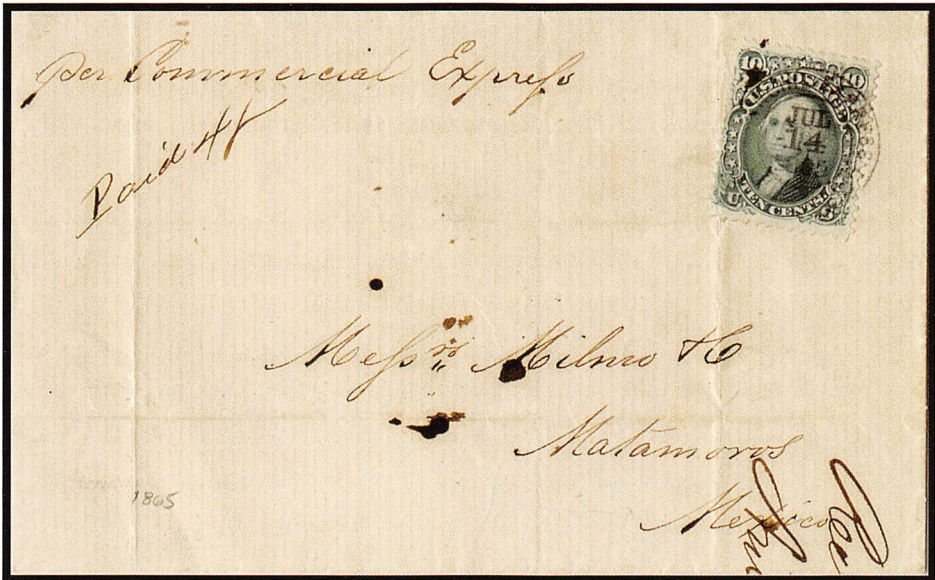 per Commercial Express
Paid
10 10
U.S. POSTAGE
JUL
14
TEN CENTS
Messrs Milmo & C
Matamoros
Mexico
1865